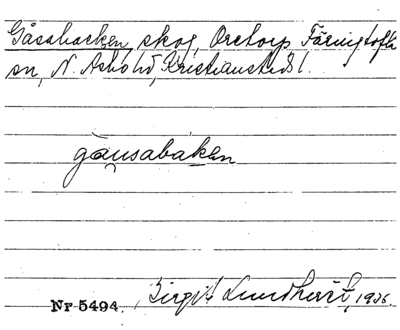 Gåsabacken, skog, Oretorp Färingtofta
sn, N. Åsbo hd, Kristianstads l.
gåusabákən
Nr 5494. Birgit Lundkvist, 1936.